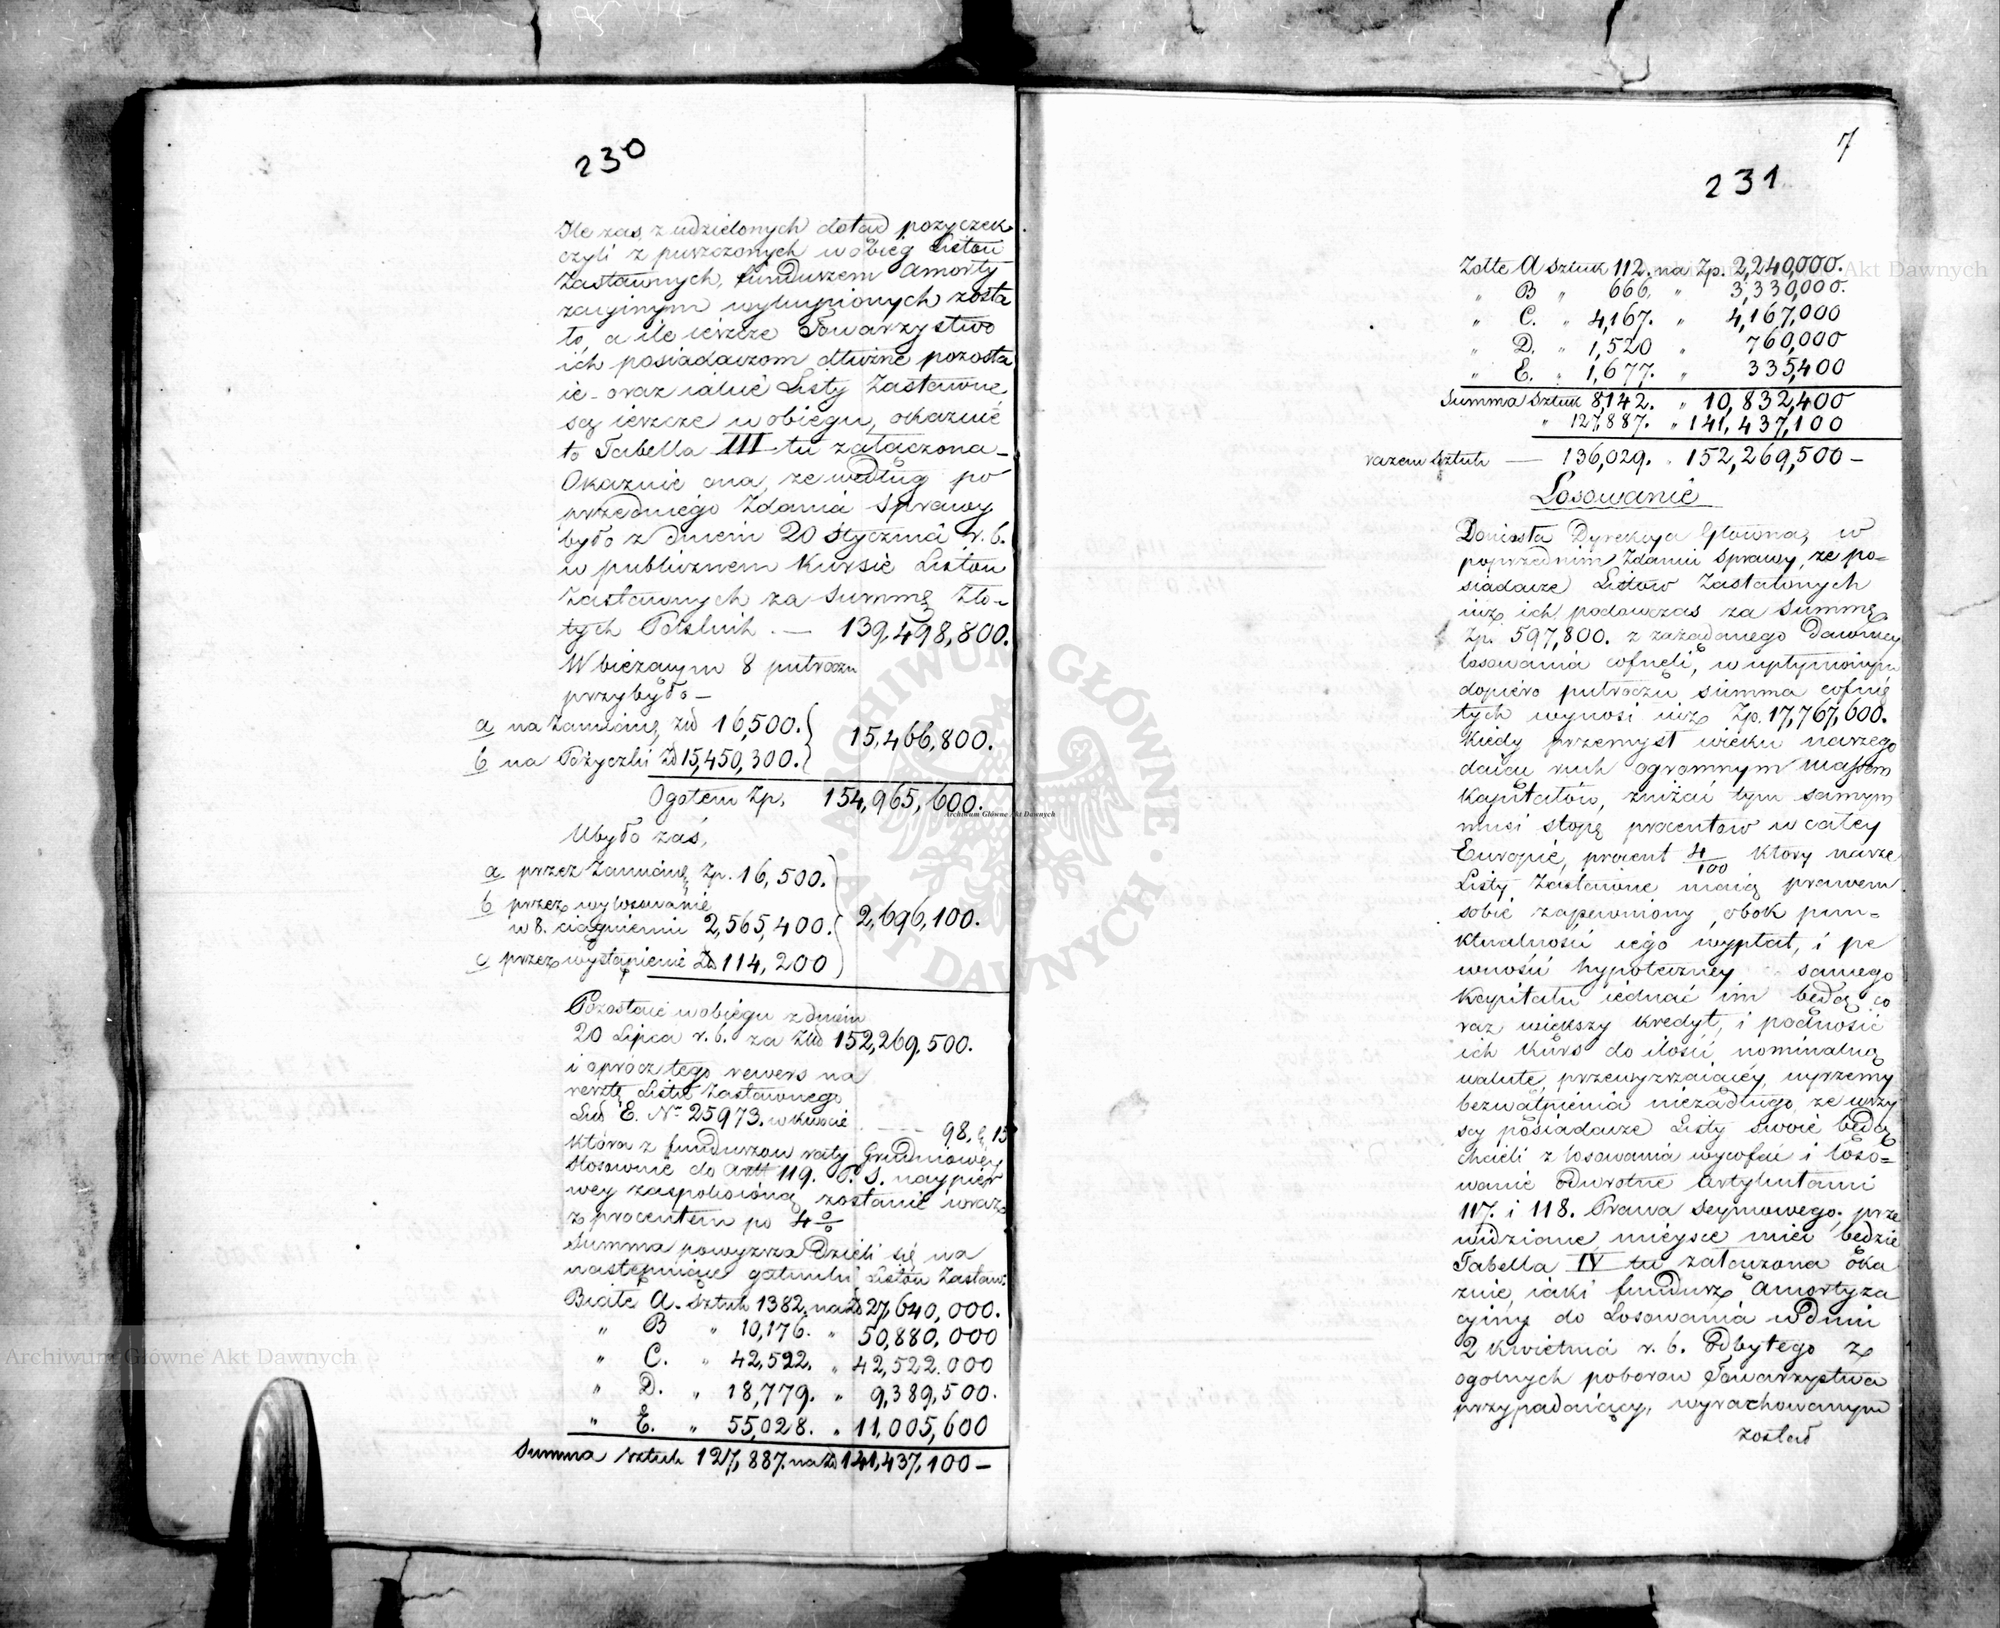 230
Ile zaś z udzielonych dotąd pożyczek
czyli z puszczonych w obieg Listów
Zastawnych, funduszem Amorty
zacyinym wykupionych zosta
ło, a ile ieszcze Towarzystwo
ich posiadaczom dłużne pozosta
ie oraz iakie Listy Zastawne
są ieszcze w obiegu, okazuie
to Tabella III tu załączona –
Okazuie ona, że według po
przedniego Zdania Sprawy
było z dniem 20 Stycznia r. b.
w publicznem Kursie Listów
Zastawnych za Summę Zło-
tych Polskich . — 139,498,800.
W bieżącym 8 półroczu
przybyło –
a na Zamianę złł 16,500.
15,466,800.
b na Pożyczki Zł 15,450,300.
Ogółem Zp. 154,965,600.
Ubyło zaś,
a przez Zamianę Zp. 16,500.
b przez wylosowanie
w 8. ciągnieniu 2,565,400.
2,696,100.
c przez wystąpienie Zł 114,200
Pozostaie w obiegu z dniem
20 Lipca r. b. za Złł 152,269,500.
i oprócz tego rewers na
resztę Listu Zastawnego
Lit. E. Nr 25973. w kwocie — 98. g 15
która z funduszów raty Grudniowéy
stosownie do Artt 119. P. S. naypier
wey zaspokoioną zostanie wraz
z procentem po 4 %
Summa powyższa dzieli się na
następuiące gatunki Listów Zastaw:
Białe A. Sztuk 1382. na Zł 27,640,000.
" B " 10,176. " 50,880,000
" C. " 42,522. " 42,522,000
" D. " 18,779. " 9,389,500.
" E. " 55,028. " 11,005,600
Summa sztuk 127,887. na Zł 141,437,100 –
7
231
Żółte A Sztuk 112. na Zp. 2,240,000.
" B " 666. " 3,330,000.
" C. " 4,167. " 4,167,000
" D. " 1,520 " 760,000
" E. " 1,677. " 335,400
Summa Sztuk 8,142. " 10,832,400
" 127,887. " 141,437,100
razem Sztuk — 136,029. " 152,269,500 –
Losowanie
Doniosła Dyrekcya Główna, w
poprzednim Zdaniu Sprawy, że po=
siadacze Listów Zastawnych
iuż ich podówczas za Summę
Zp. 597,800. z zażądanego dawniey
losowania cofnęli, w upłynionym
dopiero półroczu summa cofnię
tych wynosi iuż Zp. 17,767,600.
Kiedy przemysł wieku naszego
daiąc ruch ogromnym massom
Kapitałów, zniżać tym samym
musi stopę procentów w całey
Europie, procent 4/100 który nasze
Listy Zastawne maią prawem
sobie zapewniony, obok pun=
ktualności iego wypłat, i pe
wności hypoteczney samego
Kapitału iednać im będą co
raz większy kredyt, i podnosić
ich kurs do ilości nominalną
walutę przewyższaiącéy, uyrzemy
bezwątpienia niezadługo, że wszy
scy posiadacze Listy swoie będą
chcieli z losowania wycofać i loso=
wanie odwrotne Artykułami
117. i 118. Prawa Seymowego, prze
widziane mieysce mieć będzie
Tabella IV tu załączona oka
zuie iaki fundusz Amortyza
cyiny do Losowania w dniu
2 Kwietnia r. b. odbytego z
ogólnych poborów Towarzystwa
przypadaiący, wyrachowanym
został
Archiwum Główne Akt Dawnych
Archiwum Główne Akt Dawnych
Archiwum Główne Akt Dawnych
ARCHIWUM GŁÓWNE · AKT DAWNYCH ·